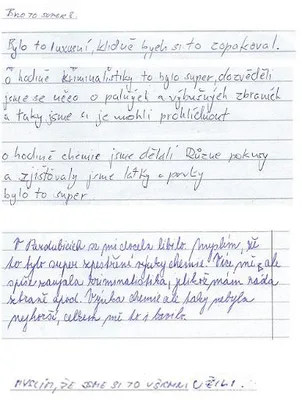 BYLO TO SUPER!
Bylo to luxusní, klidně bych si to zopakoval.
o hodině kriminalistiky to bylo super, dozvěděli
jsme se něco o palných a výbušných zbraních
a taky jsme si je mohli prohlídnout
o hodině chemie jsme dělali Různé pokusy
a zjišťovaly jsme látky a prvky
bylo to super
V Pardubicích se mi docela líbilo. Myslím, že
to bylo super zpestření výuky chemie. Více mě ale
spíše zaujala kriminalistika, jelikož mám ráda
zbraně apod. Výuka chemie ale taky nebyla
nejhorší, celkem mě to i bavilo.
MYSLÍM, ŽE JSME SI TO VŠICHNI UŽILI!